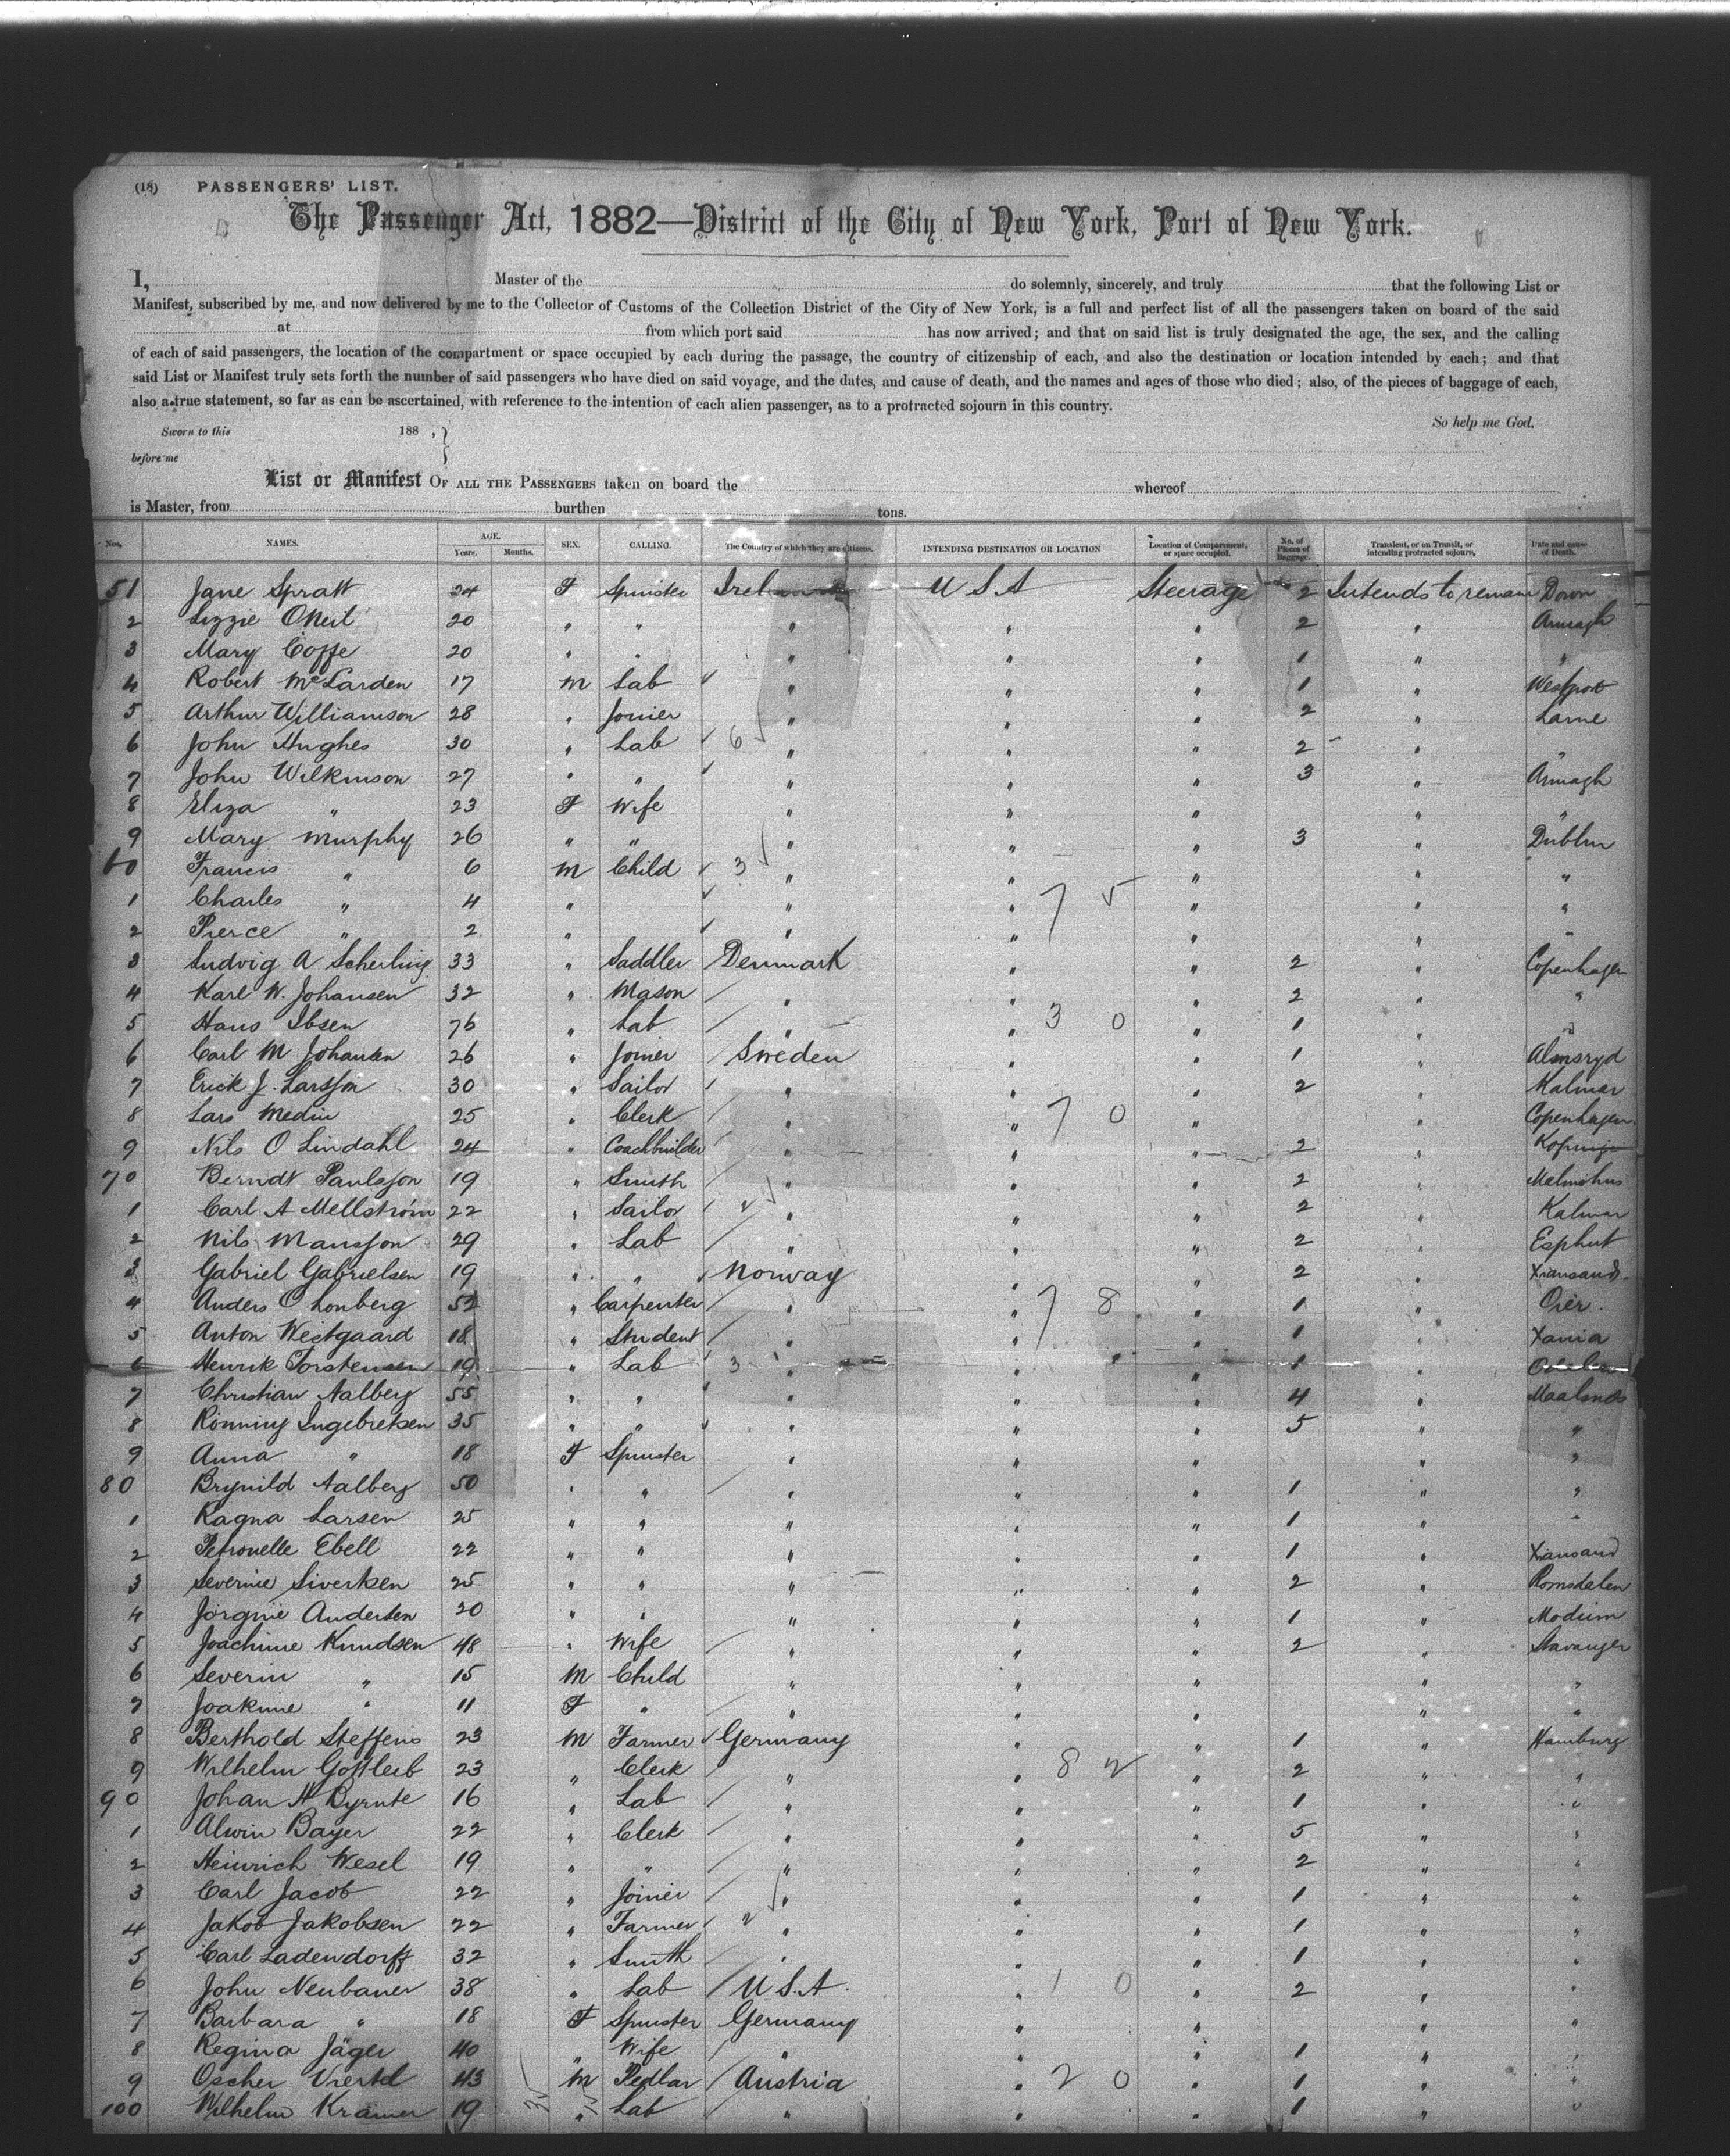 (18) PASSENGERS' LIST.
The Passenger Act, 1882—District of the City of New York, Port of New York.
I, Master of the do solemnly, sincerely, and truly that the following List or
Manifest, subscribed by me, and now delivered by me to the Collector of Customs of the Collection District of the City of New York, is a full and perfect list of all the passengers taken on board of the said
at from which port said has now arrived; and that on said list is truly designated the age, the sex, and the calling
of each of said passengers, the location of the compartment or space occupied by each during the passage, the country of citizenship of each, and also the destination or location intended by each; and that
said List or Manifest truly sets forth the number of said passengers who have died on said voyage, and the dates, and cause of death, and the names and ages of those who died; also, of the pieces of baggage of each,
also a true statement, so far as can be ascertained, with reference to the intention of each alien passenger, as to a protracted sojourn in this country.
So help me God.
Sworn to this 188 ,
before me
List or Manifest OF ALL THE PASSENGERS taken on board the whereof
is Master, from burthen tons.
Nos. NAMES. AGE. Years. Months. SEX. CALLING. The Country of which they are citizens. INTENDING DESTINATION OR LOCATION Location of Compartment, or space occupied. No. of Pieces of Baggage. Transient, or on Transit, or intending protracted sojourn. Date and cause of Death.
51 Jane Spratt 24 F Spinster Ireland U S A Steerage 2 Intends to remain Down
2 Lizzie ONeil 20 " " " " " 2 " Armagh
3 Mary Coffe 20 " " " " " 1 " "
4 Robert McLarden 17 M Lab " " " 1 " Westport
5 Arthur Williamson 28 " Joiner " " " 2 " Larne
6 John Hughes 30 " Lab 6 " " " 2 " "
7 John Wilkinson 27 " " " " " 3 " Armagh
8 Eliza " 23 F Wife " " " " "
9 Mary Murphy 26 " " " " " 3 " Dublin
60 Francis " 6 M Child 3 " " " " "
1 Charles " 4 " " " 75 " " "
2 Pierce " 2 " " " " " "
3 Ludvig A Scherling 33 " Saddler Denmark " " 2 " Copenhagen
4 Karl W. Johansen 32 " Mason " " " 2 " "
5 Hans Ibsen 76 " Lab " " 3 0 " 1 " "
6 Carl M Johansen 26 " Joiner Sweden " " 1 " Almsryd
7 Erick J. Larsson 30 " Sailor " " " 2 " Kalmar
8 Lars Medin 25 " Clerk " " 7 0 " " Copenhagen
9 Nils O Lindahl 24 " Coachbuilder " " " 2 "
70 Berndt Paulsson 19 " Smith " " " 2 " Malmohus
1 Carl A Mellström 22 " Sailor " " " 2 " Kalmar
2 Nils Mansson 29 " Lab " " " 2 " Esphut
3 Gabriel Gabrielsen 19 " " Norway " " 2 " Xiansand
4 Anders O Lonberg 52 " Carpenter " " 7 8 " 1 "
5 Anton Westgaard 18 " Student " " " 1 " Xania
6 Henrik Torstensen 19 " Lab 3 " " " 1 "
7 Christian Aalberg 55 " " " " " 4 "
8 Ronning Ingebretsen 35 " " " " " 5 " "
9 Anna " 18 F Spinster " " " " "
80 Brynild Aalberg 50 " " " " " 1 " "
1 Ragna Larsen 25 " " " " " 1 " "
2 Petronelle Ebell 22 " " " " " 1 " Xiansand
3 Severine Sivertsen 25 " " " " " 2 " Romsdalen
4 Jorgine Andersen 20 " " " " " 1 " Modum
5 Joachime Knudsen 48 " Wife " " " 2 " Stavanger
6 Severin " 15 M Child " " " " "
7 Joakime " 11 F " " " " " "
8 Berthold Steffens 23 M Farmer Germany " " 1 " Hamburg
9 Wilhelm Gottleib 23 " Clerk " " 8 2 " 2 " "
90 Johan H Byrnte 16 " Lab " " " 1 " "
1 Alwin Bayer 22 " Clerk " " " 5 " "
2 Heinrich Wesel 19 " " " " " 2 " "
3 Carl Jacob 22 " Joiner " " " 1 " "
4 Jakob Jakobsen 22 " Farmer " " " 1 " "
5 Carl Ladendorff 32 " Smith " " " 1 " "
6 John Neubauer 38 " Lab U.S.A. " 1 0 " 2 " "
7 Barbara " 18 F Spinster Germany " " " "
8 Regina Jäger 40 " Wife " " " 1 " "
9 Oscher Viertel 43 M Pedlar Austria " 2 0 " 1 " "
100 Wilhelm Kramer 19 " Lab " " " 1 " "